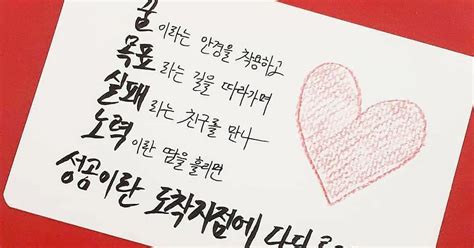 꿈이라는 안경을 착용하고
목표라는 길을 따라가며
실패라는 친구를 만나
노력이란 땀을 흘리면
성공이란 도착지점에